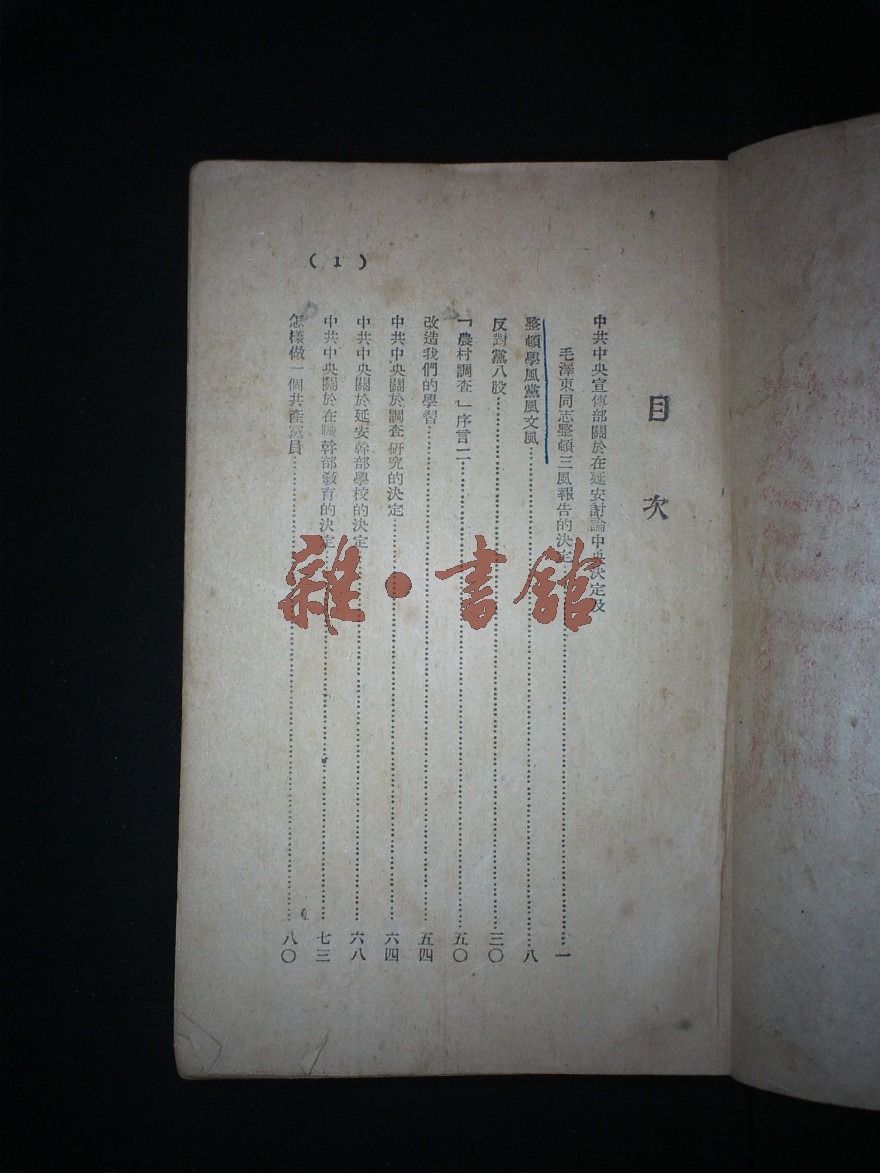 目次
中共中央宣傳部關於在延安討論中央決定及
毛澤東同志整頓三風報告的決定……一
整頓學風黨風文風……八
反對黨八股……三〇
「農村調查」序言二……五〇
改造我們的學習……五四
中共中央關於調查研究的決定……六四
中共中央關於延安幹部學校的決定……六八
中共中央關於在職幹部教育的決定……七三
怎樣做一個共產黨員……八〇
(1)
雜·書館